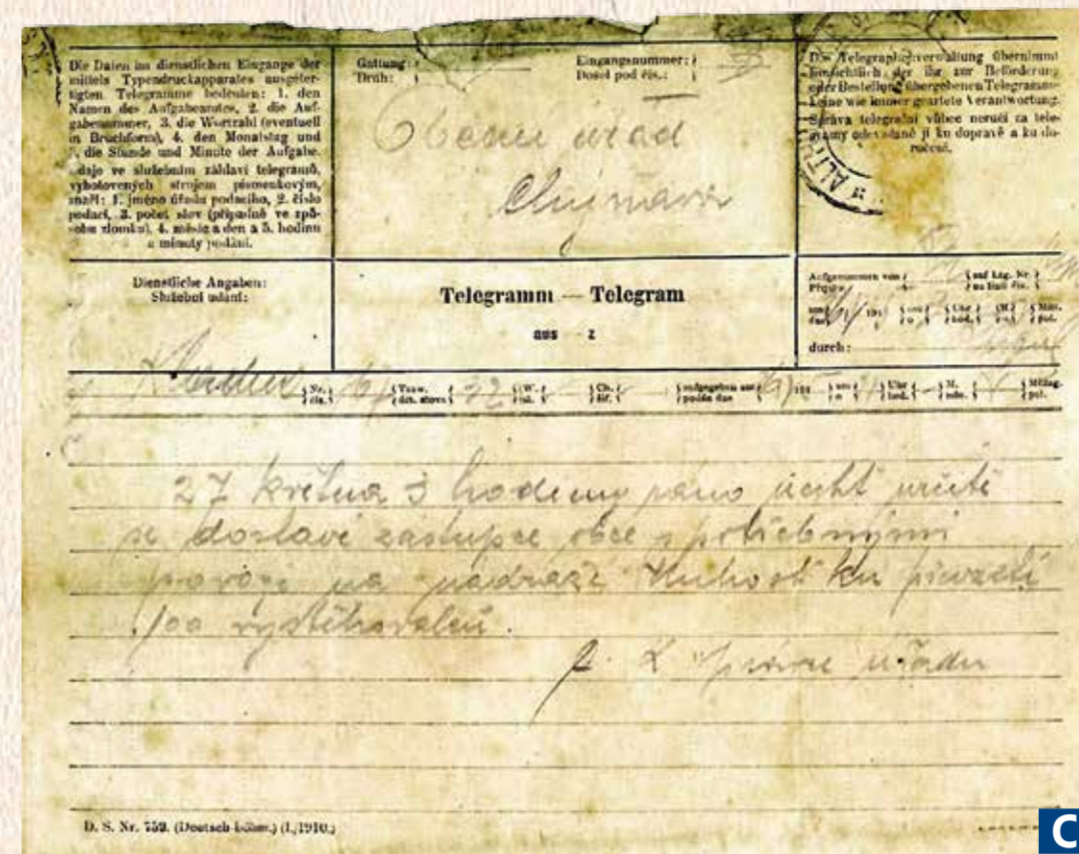 Die Daten im dienstlichen Eingange der
mittels Typendruckapparates ausgefer-
tigten Telegramme bedeuten: 1. den
Namen des Aufgabeamtes, 2. die Auf-
gabenummer, 3. die Wortzahl (eventuell
in Bruchform), 4. den Monatstag und
5. die Stunde und Minute der Aufgabe.
Údaje ve služebním záhlaví telegramů,
vyhotovených strojem písmenkovým,
značí: 1. jméno úřadu podacího, 2. číslo
podací, 3. počet slov (případně ve způ-
sobu zlomku), 4. měsíc a den a 5. hodinu
a minuty podání.
Gattung:
Druh:
Eingangsnummer:
Došel pod čís.:
Obecní úřad
Die Telegraphenverwaltung übernimmt
hinsichtlich der ihr zur Beförderung
oder Bestellung übergebenen Telegramme
keine wie immer geartete Verantwortung.
Správa telegrafní vůbec neručí za tele-
gramy odevzdané jí ku dopravě a ku do-
ručení.
Dienstliche Angaben:
Služební udání:
Telegramm — Telegram
aus z
Aufgenommen von
auf Ltg. Nr.
na linii čís.
durch:
Nr. čís. Taxw. 32 W. Ch. šif. aufgegeben am podán dne 191 um o Uhr hod. M. Mittag. pol.
27 května 3 hodiny ráno nechť určitě
se dostaví zástupce obce s potřebnými
povozy na nádraží ku převzetí
100 vystěhovalců.
úřadu
D. S. Nr. 759. (Deutsch-böhm.) (I./1910.)
C